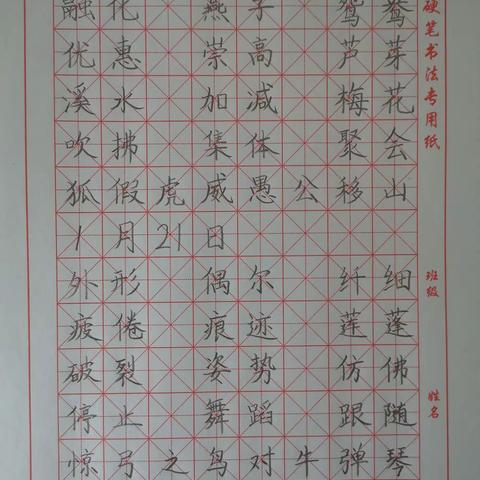 融化 燕子 鸳鸯
优惠 崇高 芦芽
溪水 加减 梅花
吹拂 集体 聚会
狐假虎威 愚公移山
1月21日
外形 偶尔 纤细
疲倦 痕迹 莲蓬
破裂 姿势 仿佛
停止 舞蹈 跟随
惊弓之鸟 对牛弹琴
硬笔书法专用纸
班级
姓名